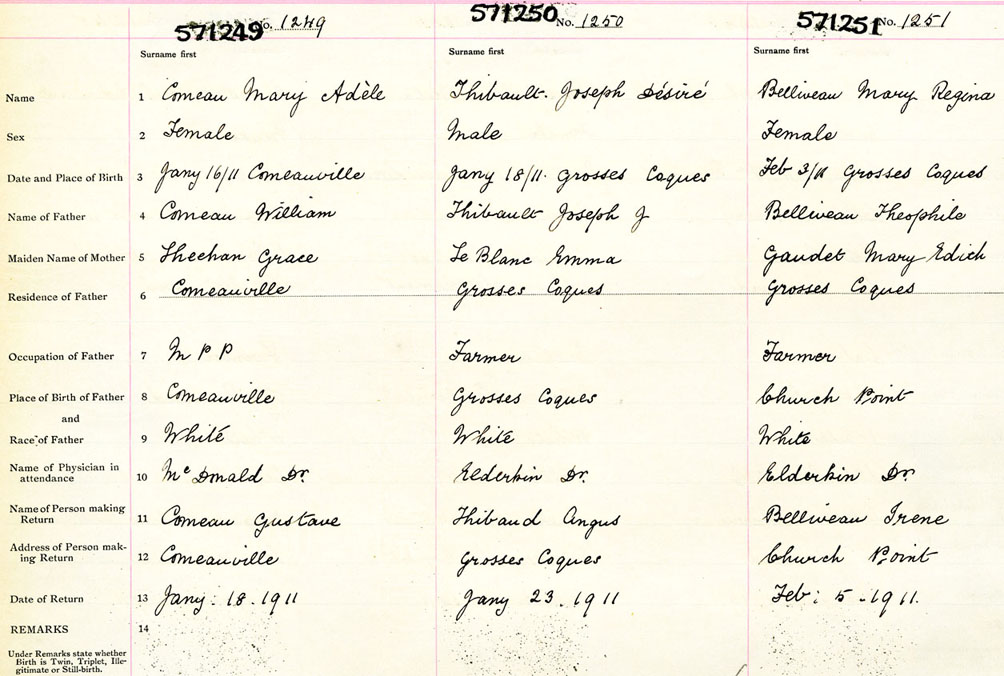 571249 No. 1249 571250 No. 1250 571251 No. 1251
Surname first Surname first Surname first
Name 1 Comeau Mary Adèle Thibault. Joseph Désiré Belliveau Mary Regina
Sex 2 Female Male Female
Date and Place of Birth 3 Jany 16/11 Comeauville Jany 18/11. Grosses Coques Feb 3/11 Grosses Coques
Name of Father 4 Comeau William Thibault Joseph J Belliveau Theophile
Maiden Name of Mother 5 Sheehan Grace Le Blanc Emma Gaudet Mary Edich
Residence of Father 6 Comeauville Grosses Coques Grosses Coques
Occupation of Father 7 M P P Farmer Farmer
Place of Birth of Father 8 Comeauville Grosses Coques Church Point
and
Race of Father 9 White White White
Name of Physician in
attendance 10 Mc Donald Dr. Elderkin Dr. Elderkin Dr.
Name of Person making
Return 11 Comeau Gustave Thibaud Angus Belliveau Irene
Address of Person mak-
ing Return 12 Comeauville Grosses Coques Church Point
Date of Return 13 Jany. 18. 1911 Jany 23. 1911 Feb: 5 - 1911.
REMARKS 14
Under Remarks state whether
Birth is Twin, Triplet, Ille-
gitimate or Still-birth.